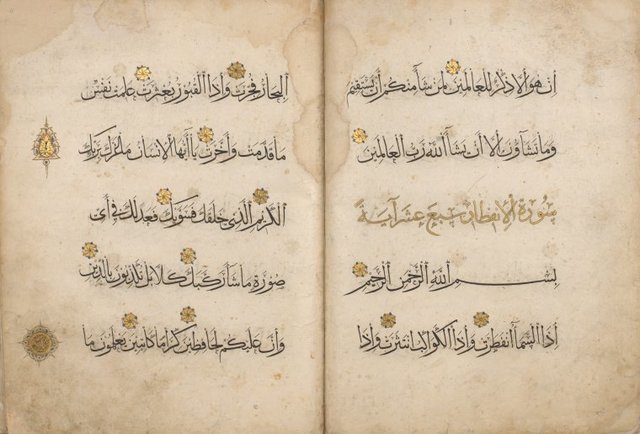 ان هو الا ذكر للعالمين لمن شا منكم ان يستقيم
وما تشاون الا أن يشا الله رب العالمين
سورة الانفطار سبع عشر آية
بسم الله الرحمن الرحيم
اذا السما انفطرت واذا الكواكب انتثرت واذا
البحار فجرت واذا القبور بعثرت علمت نفس
ما قدمت وأخرت يا أيها الانسان ما غرك بربك
الكريم الذي خلقك فسويك فعدلك في أي
صورة ما شا ركبك كلا بل تكذبون بالدين
وان عليكم لحافظين كراما كاتبين يعلمون ما